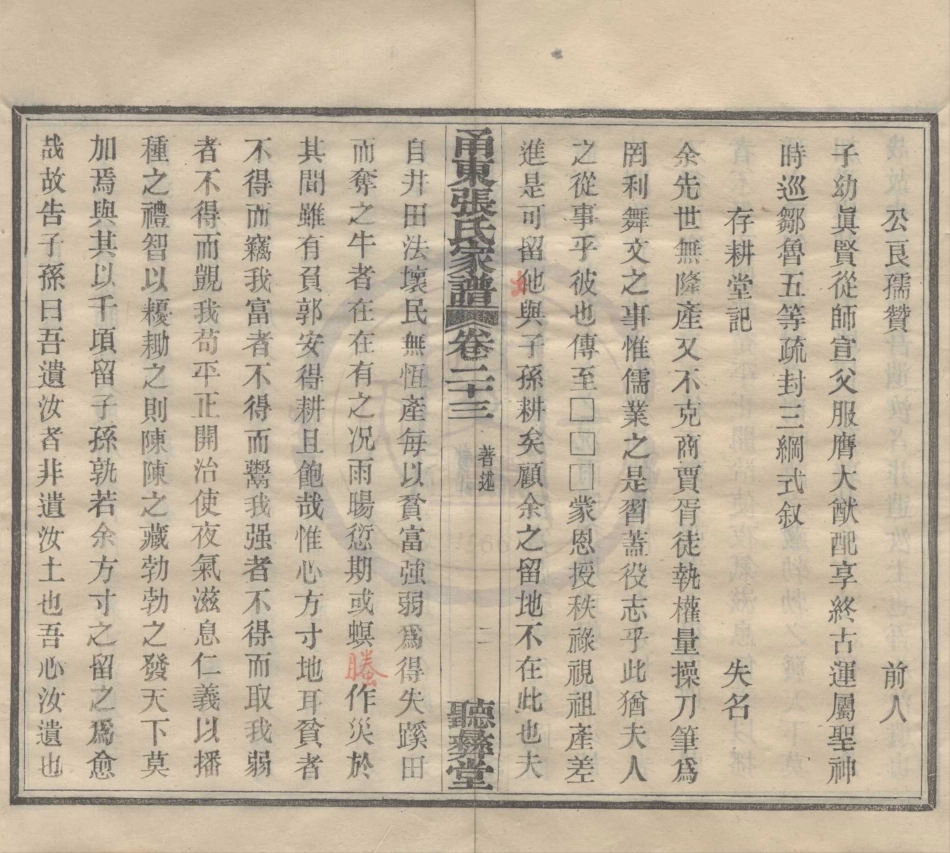 公良孺贊 前人
子幼眞賢從師宣父服膺大猷配享終古運屬聖神
時巡鄒魯五等疏封三綱式叙
存耕堂記 失名
余先世無隆產又不克商賈胥徒執權量操刀筆爲
罔利舞文之事惟儒業之是習蓋役志乎此猶夫人
之從事乎彼也傳至□□□蒙恩授秩祿視祖產差
進是可留地與子孫耕矣顧余之留地不在此也夫
甬東張氏家譜 卷二十三 著述 二 聽彝堂
自井田法壞民無恆產每以貧富強弱爲得失蹊田
而奪之牛者在在有之况雨暘愆期或螟螣作災於
其間雖有負郭安得耕且飽哉惟心方寸地耳貧者
不得而竊我富者不得而鬻我强者不得而取我弱
者不得而覬我苟平正開治使夜氣滋息仁義以播
種之禮智以耰耡之則陳陳之藏勃勃之發天下莫
加焉與其以千頃留子孫孰若余方寸之留之爲愈
哉故告子孫曰吾遺汝者非遺汝土也吾心汝遺也